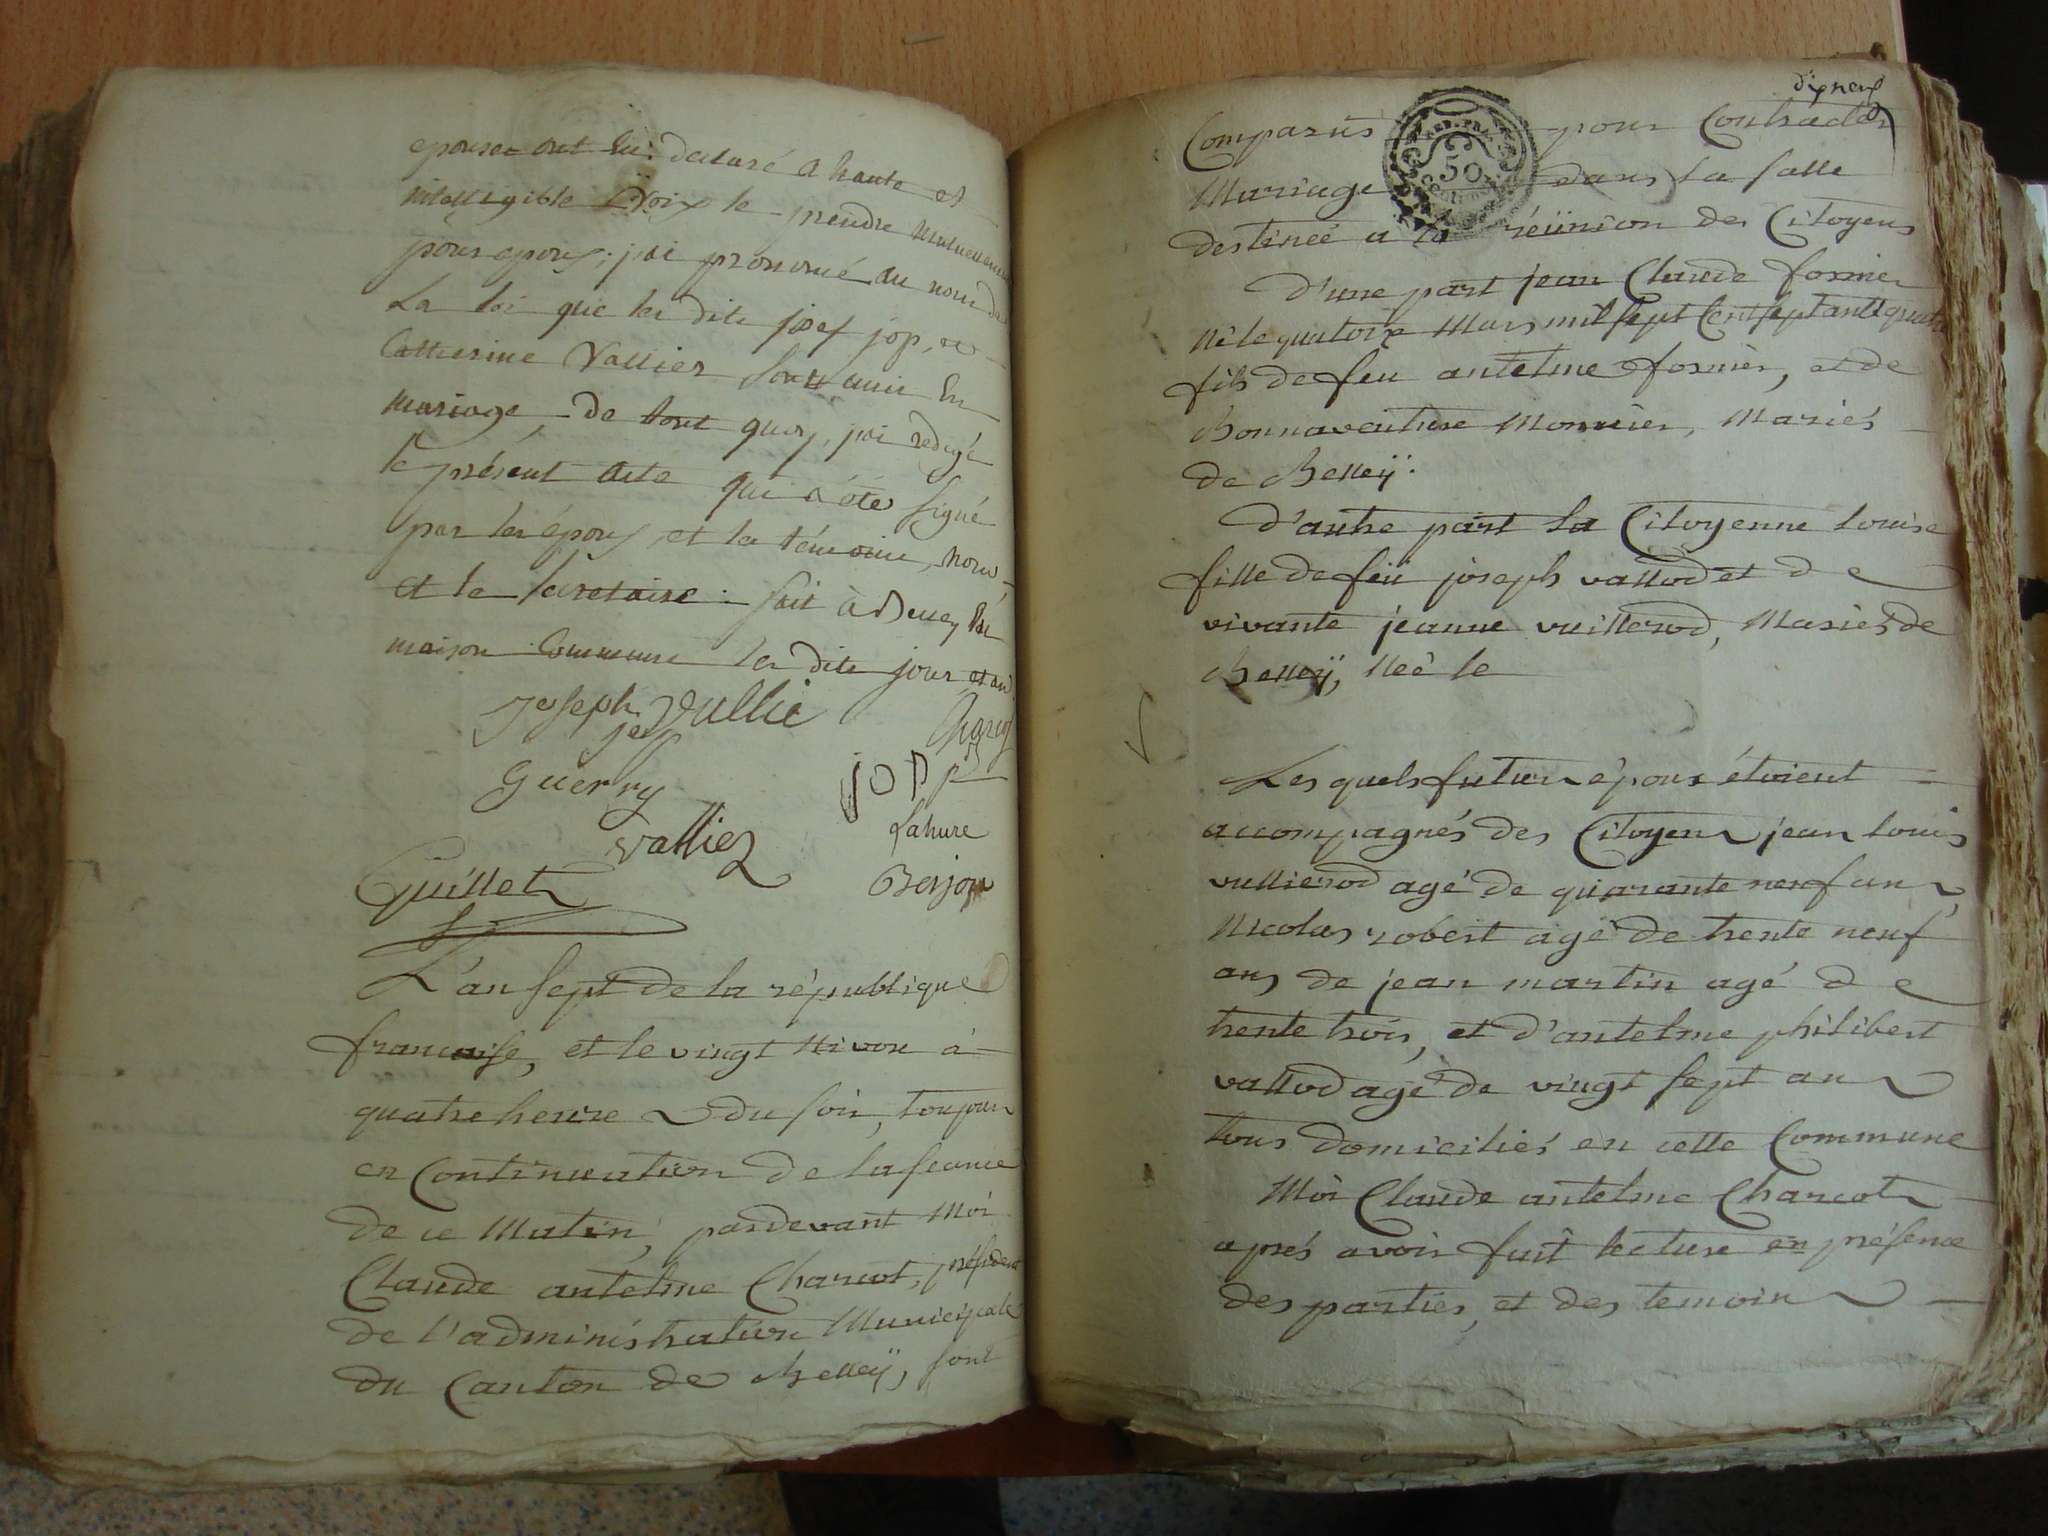 epouser ont déclaré a haute et
intelligible voix se prendre mutuellement
pour epoux; jai prononcé au nom de
La loi que les dits josef jop, et
Catherine Vallier sont unis En
mariage, de tout quoy, jai redigé
le présent acte qui a été signé
par les époux, et les témoins, nous,
et le secretaire: fait à Belley En
maison Commune les dits jour et an
Joseph jop Vullie Charcot
Guerry jopp
vallier Lahure
Guillet Berjon
L'an sept de la république
francaise, et le vingt Nivose à
quatre heures du soir, toujours
en Continuation de la seance
de ce Matin, pardevant Moi
Claude antelme Charcot, président
de l'administration Municipale
du Canton de Belleÿ, sont
dix neuf
Comparus pour Contracter
Mariage dans la salle
REP. FRA. 50
destinée a la réünion des Citoyens
D'une part jean Claude fornier
Né le quatorze Mars mil sept Cent septante quatre
fils de feu antelme fornier, et de
Bonnaventure Monnier, Mariés
de Belleÿ.
d'autre part la Citoyenne Louise
fille de feü joseph vallod et de
vivante jeanne vuillerod, Mariés de
Belleÿ, Neé le
Les quels futurs époux étoient
accompagnés des Citoyens jean Louis
vullierod agé de quarante neuf ans,
Nicolas robert agé de trente neuf
ans de jean martin agé de
trente trois, et d'antelme philibert
vallod agé de vingt sept ans
tous domiciliés en cette Commune
Moi Claude antelme Charcot
aprés avoir fait lecture en présence
des parties, et des temoins